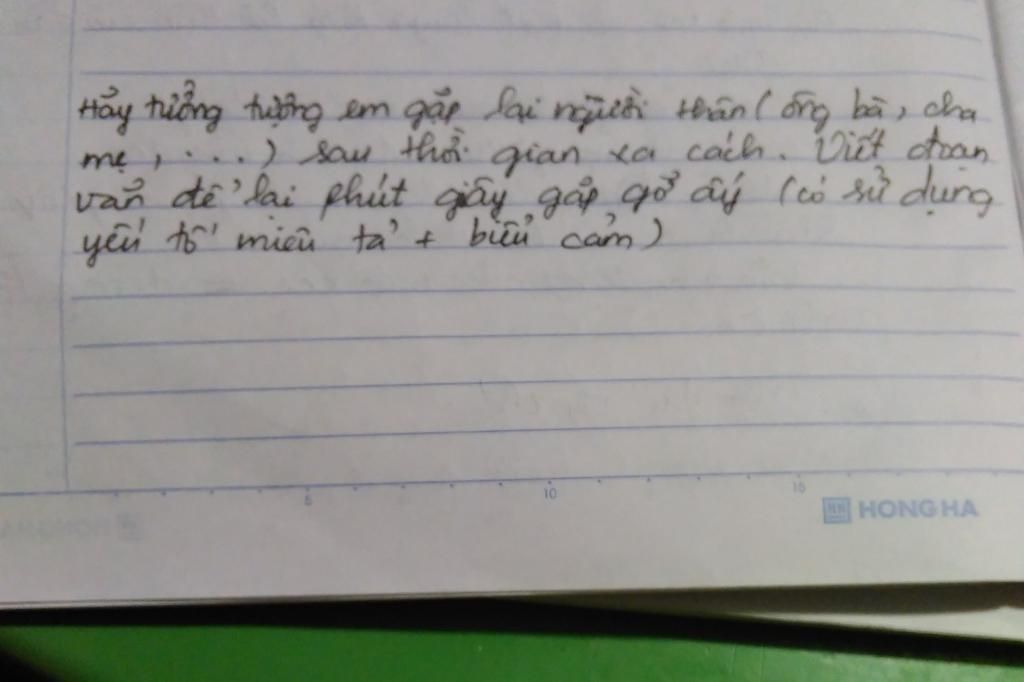 Hãy tưởng tượng em gặp lại người thân (ông bà, cha
mẹ, ....) sau thời gian xa cách. Viết đoạn
văn để lại phút giây gặp gỡ ấy (có sử dụng
yếu tố miêu tả + biểu cảm)
5 10 15
HH HONG HA